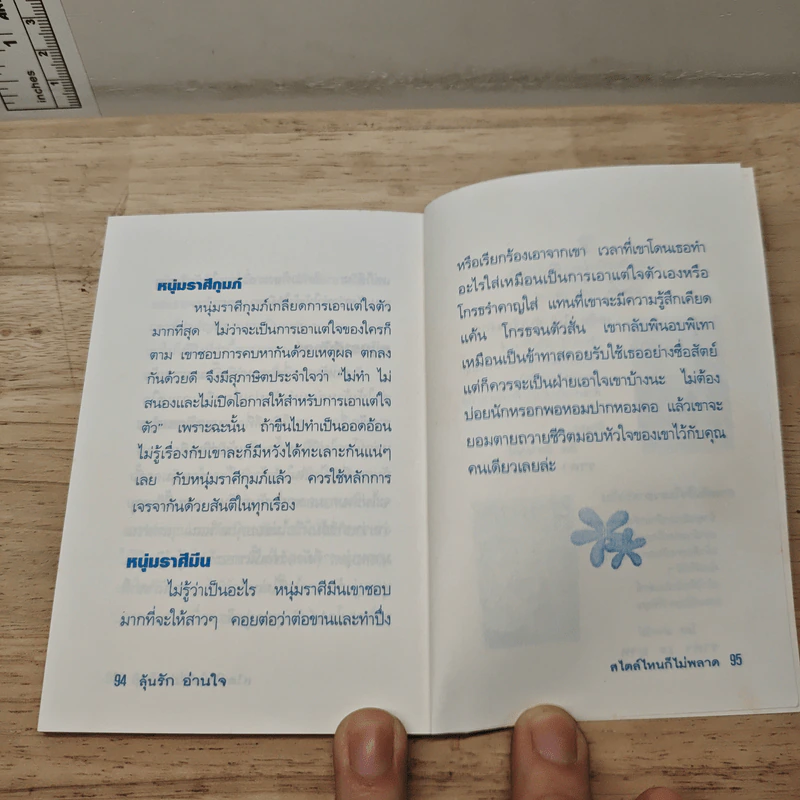 inches
1
1
2
3
หนุ่มราศีกุมภ์
หนุ่มราศีกุมภ์เกลียดการเอาแต่ใจตัว
มากที่สุด ไม่ว่าจะเป็นการเอาแต่ใจของใครก็
ตาม เขาชอบการคบหากันด้วยเหตุผล ตกลง
กันด้วยดี จึงมีสุภาษิตประจำใจว่า "ไม่ทำ ไม่
สนองและไม่เปิดโอกาสให้สำหรับการเอาแต่ใจ
ตัว" เพราะฉะนั้น ถ้าขืนไปทำเป็นออดอ้อน
ไม่รู้เรื่องกับเขาละก็มีหวังได้ทะเลาะกันแน่ๆ
เลย กับหนุ่มราศีกุมภ์แล้ว ควรใช้หลักการ
เจรจากันด้วยสันติในทุกเรื่อง
หนุ่มราศีมีน
ไม่รู้ว่าเป็นอะไร หนุ่มราศีมีนเขาชอบ
มากที่จะให้สาวๆ คอยต่อว่าต่อขานและทำปึ่ง
94 ลุ้นรัก อ่านใจ
หรือเรียกร้องเอาจากเขา เวลาที่เขาโดนเธอทำ
อะไรใส่เหมือนเป็นการเอาแต่ใจตัวเองหรือ
โกรธรำคาญใส่ แทนที่เขาจะมีความรู้สึกเคียด
แค้น โกรธจนตัวสั่น เขากลับพินอบพิเทา
เหมือนเป็นข้าทาสคอยรับใช้เธออย่างซื่อสัตย์
แต่ก็ควรจะเป็นฝ่ายเอาใจเขาบ้างนะ ไม่ต้อง
บ่อยนักหรอกพอหอมปากหอมคอ แล้วเขาจะ
ยอมตายถวายชีวิตมอบหัวใจของเขาไว้กับคุณ
คนเดียวเลยล่ะ
สไตล์ไหนก็ไม่พลาด 95